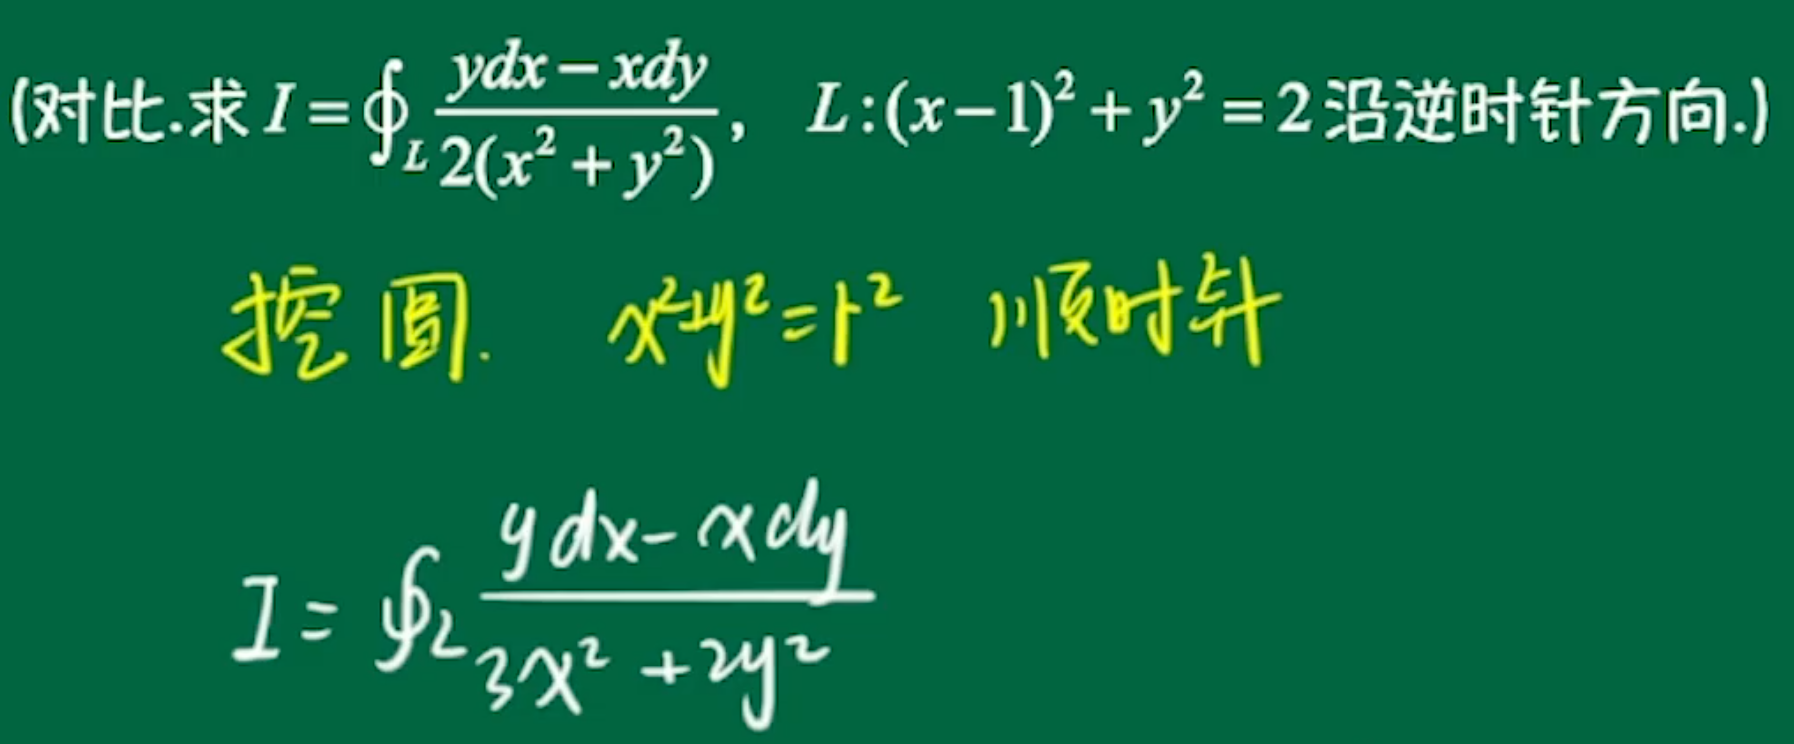 (对比.求 I = ∮_L (ydx − xdy) / (2(x² + y²)), L:(x−1)² + y² = 2 沿逆时针方向.)
挖圆. x²+y²=r² 顺时针
I = ∮_L (ydx − xdy) / (3x² + 2y²)